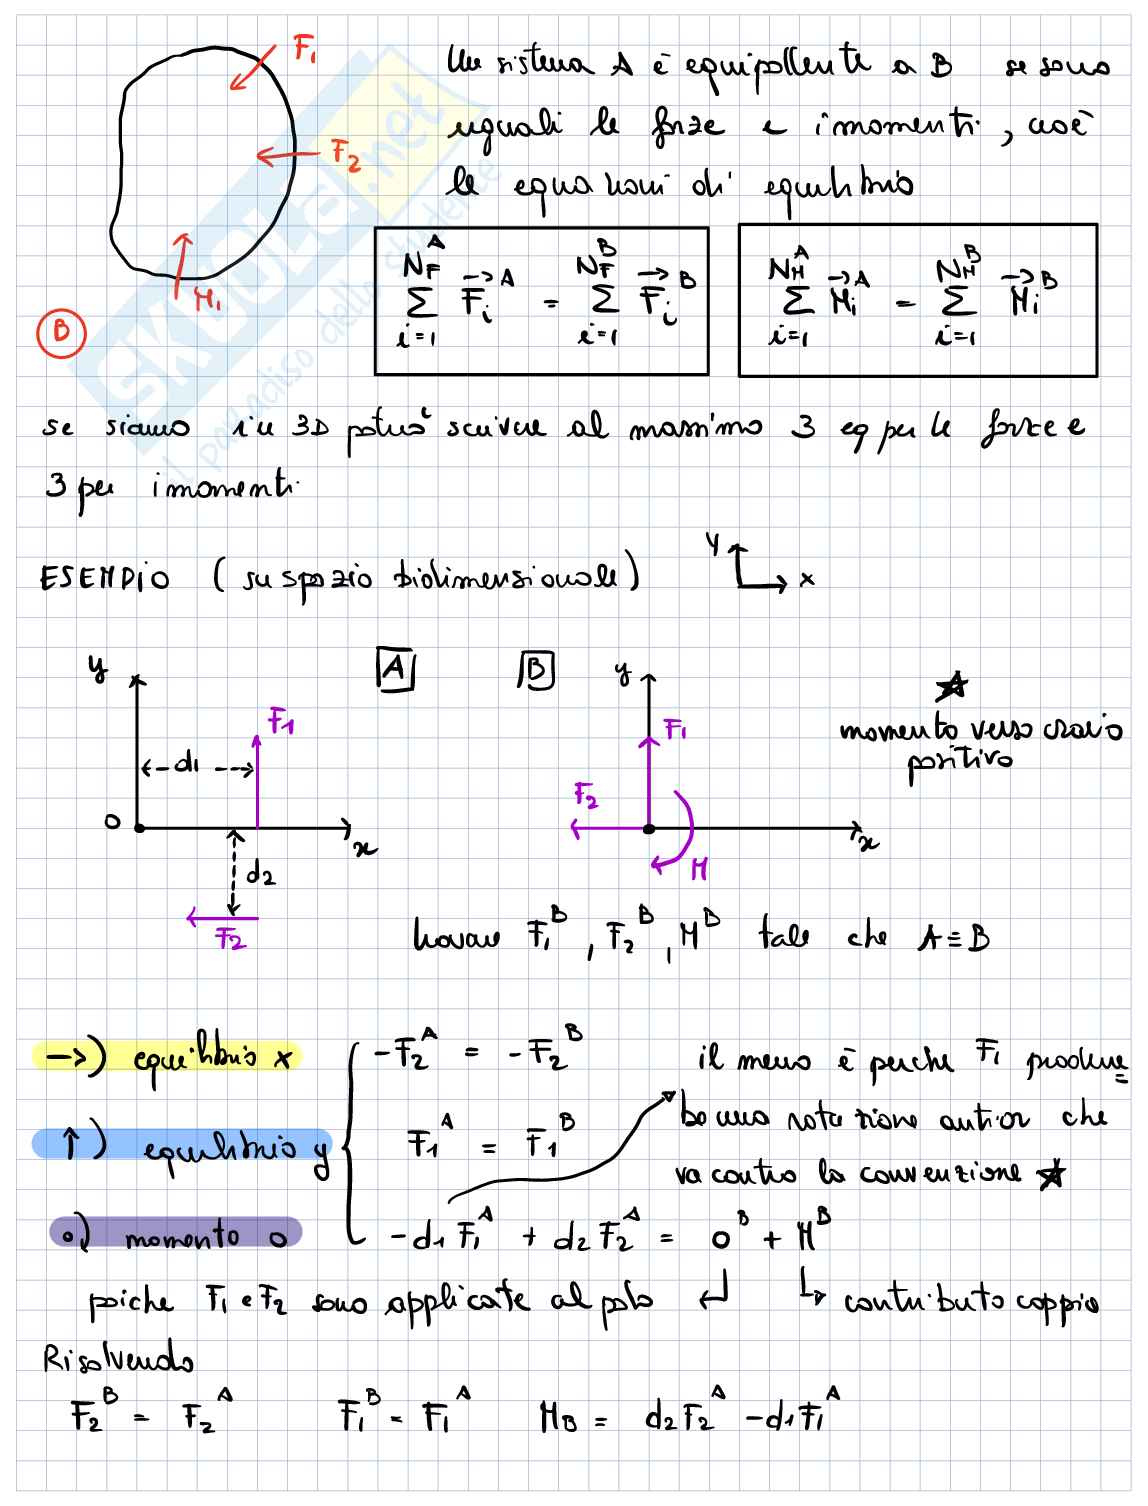 F₁
F₂
M₁
B
Un sistema A è equipollente a B se sono
uguali le forze e i momenti, cioè
le equazioni di equilibrio
\sum_{i=1}^{N_F^A} \vec{F}_i^A = \sum_{i=1}^{N_F^B} \vec{F}_i^B
\sum_{i=1}^{N_M^A} \vec{M}_i^A = \sum_{i=1}^{N_M^B} \vec{M}_i^B
se siamo in 3D potrò scrivere al massimo 3 eq per le forze e
3 per i momenti
ESEMPIO (su spazio bidimensionale)
y
x
A
y
F₁
d₁
O
x
d₂
F₂
B
y
F₁
F₂
x
M
☆
momento verso orario
positivo
trovare F₁ᴮ, F₂ᴮ, Mᴮ tale che A≡B
->) equilibrio x
-F₂ᴬ = -F₂ᴮ
↑) equilibrio y
F₁ᴬ = F₁ᴮ
o) momento O
-d₁F₁ᴬ + d₂F₂ᴬ = 0ᴮ + Mᴮ
il meno è perche F₁ produrre=
be una rotazione antior che
va contro la convenzione ☆
poiche F₁ e F₂ sono applicate al polo
contributo coppia
Risolvendo
F₂ᴮ = F₂ᴬ F₁ᴮ = F₁ᴬ M_B = d₂F₂ᴬ - d₁F₁ᴬ
SKUOLA.net
il paradiso dello studente